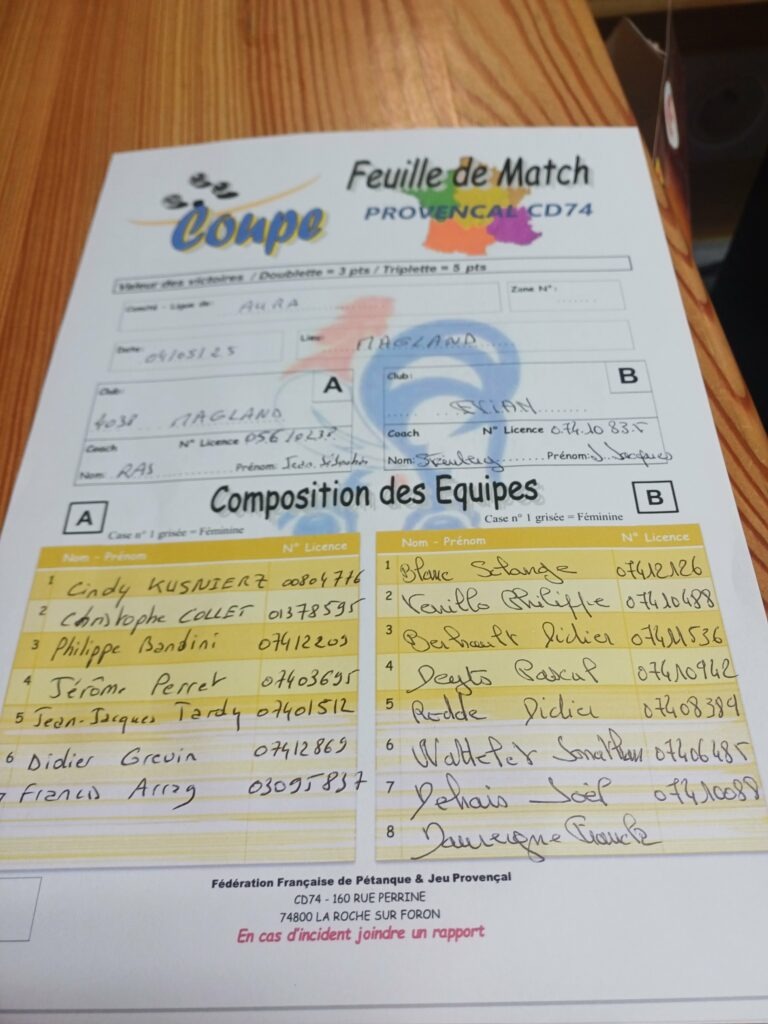 Coupe
Feuille de Match
PROVENCAL CD74
Valeur des victoires / Doublette = 3 pts / Triplette = 5 pts
Comité - Ligue de: AURA
Zone N°:
Date: 04/05/25
Lieu: MAGLAND
Club: A
4038 MAGLAND
Coach N° Licence
Nom: RAS Prénom: Jean
Club: B
EVIAN
Coach N° Licence 074.10 835
Nom: Prénom: J. Jacques
Composition des Equipes
A
Case n° 1 grisée = Féminine
B
Case n° 1 grisée = Féminine
Nom - Prénom N° Licence
1 Cindy KUSNIERZ 00804776
2 Christophe COLLET 01378595
3 Philippe Bandini 07412209
4 Jérôme Perret 07403695
5 Jean-Jacques Tardy 07401512
6 Didier Grevin 07412869
7 Francis Arrag 03095837
Nom - Prénom N° Licence
1 Blanc Solange 07412126
2 Philippe 07410488
3 Berhault Didier 07411536
4 Pascal 07410942
5 Redde Didier 07408389
6 Wattelet Jonathan 07406485
7 Dehais Joël 07410088
8 Dauvergne Franck
Fédération Française de Pétanque & Jeu Provençal
CD74 - 160 RUE PERRINE
74800 LA ROCHE SUR FORON
En cas d'incident joindre un rapport